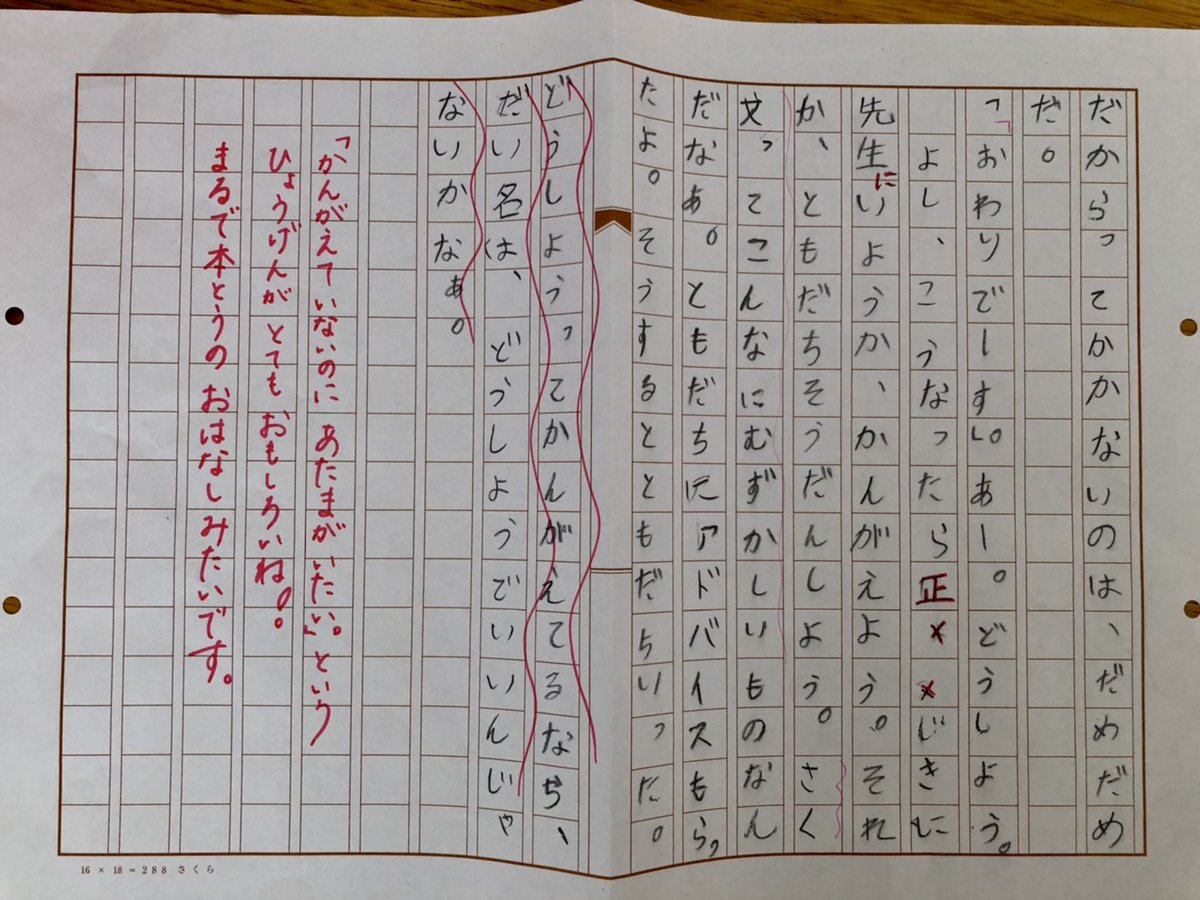 だからってかかないのは、だめだめ
だ。
「おわりでーす」。あー。どうしよう。
よし、こうなったら正××じきに
先生にいようか、かんがえよう。それ
か、ともだちそうだんしよう。さく
文ってこんなにむずかしいものなん
だなあ。ともだちにアドバイスもらっ
たよ。そうするとともだちいった。
どうしようってかんがえてるなら、
だい名は、どうしようでいいんじゃ
ないかなぁ。
「かんがえていないのにあたまがいたい」。という
ひょうげんがとてもおもしろいね!。
まるで本とうのおはなしみたいです。
16 × 18 = 288 さくら